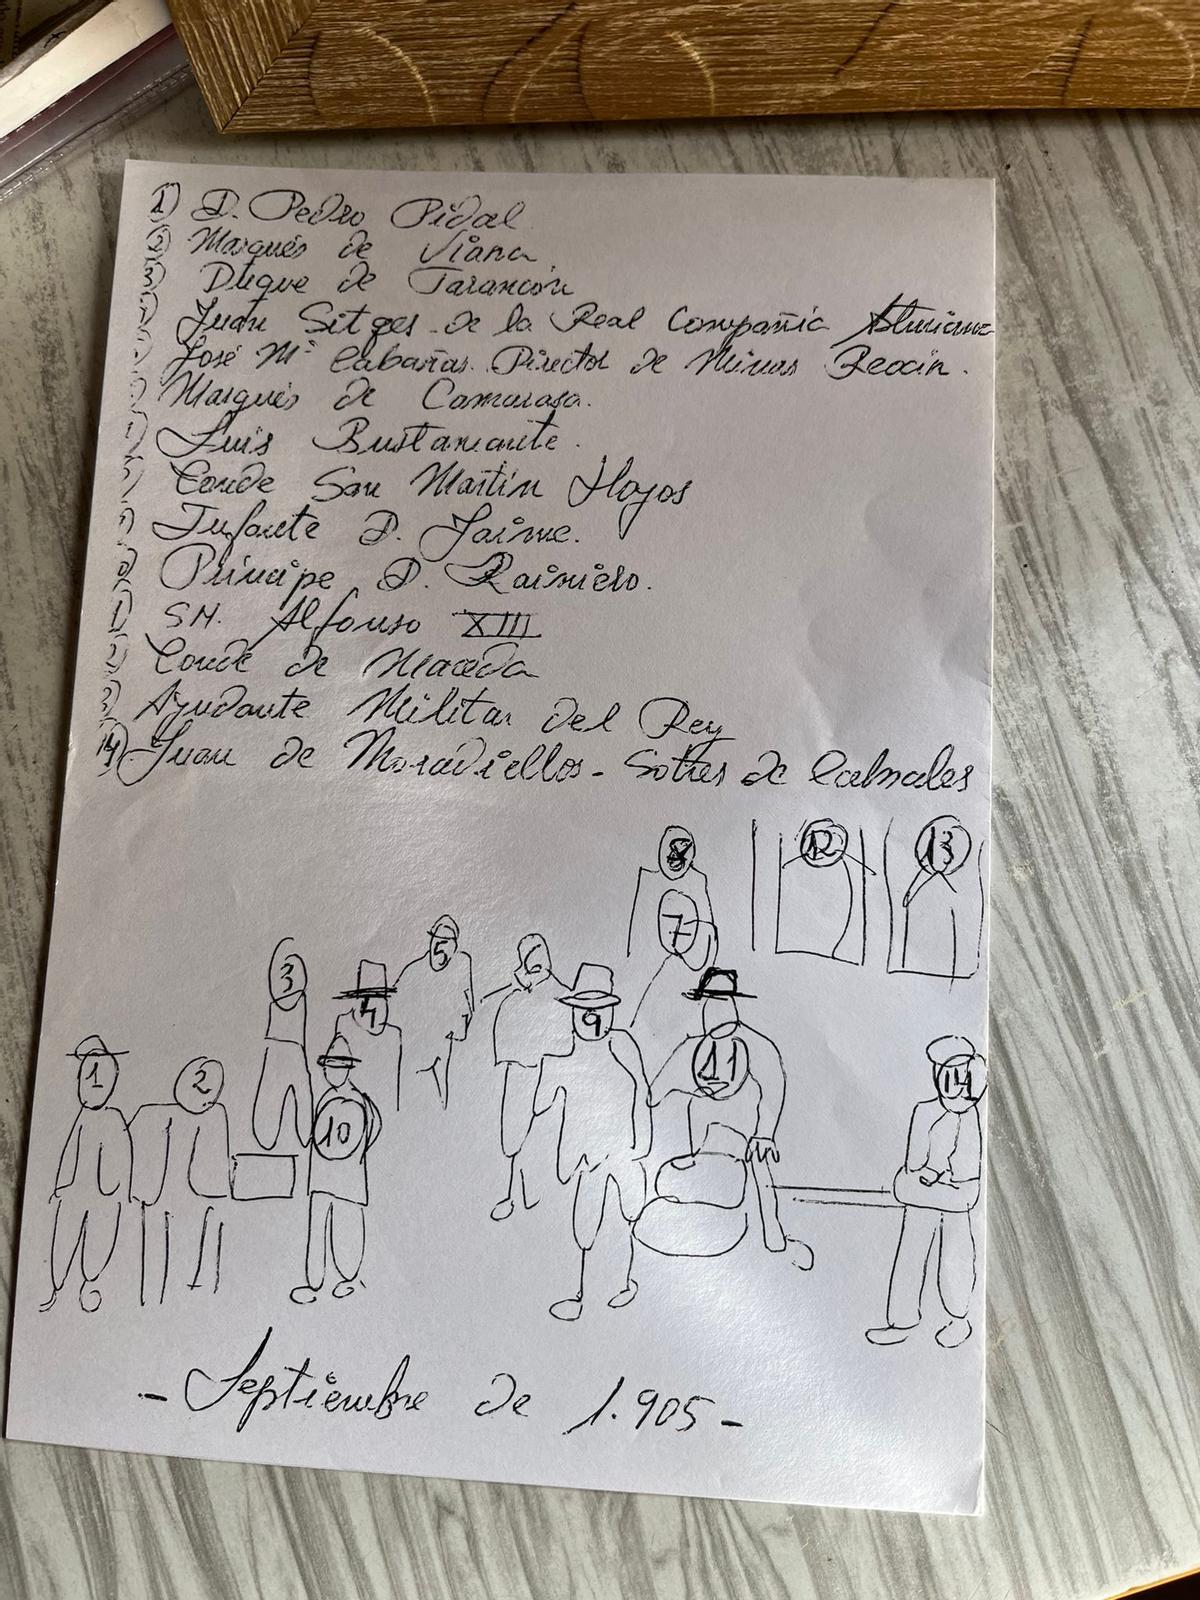 1) D. Pedro Pidal
2) Marqués de Viana
3) Duque de Tarancón
4) Juan Sitges de la Real Compañía Asturiana
5) José Mª Cabañas. Director de Minas Reocín.
6) Marqués de Camarasa.
7) Luis Bustamante.
8) Conde San Martín Hoyos
9) Infante D. Jaime.
10) Príncipe D. Rainiero.
11) SM. Alfonso XIII
12) Conde de Maceda
13) Ayudante Militar del Rey
14) Juan de Moradiellos - Sotres de Cabrales
8
12
13
7
5
3
6
4
9
1
2
11
14
10
- Septiembre de 1.905 -